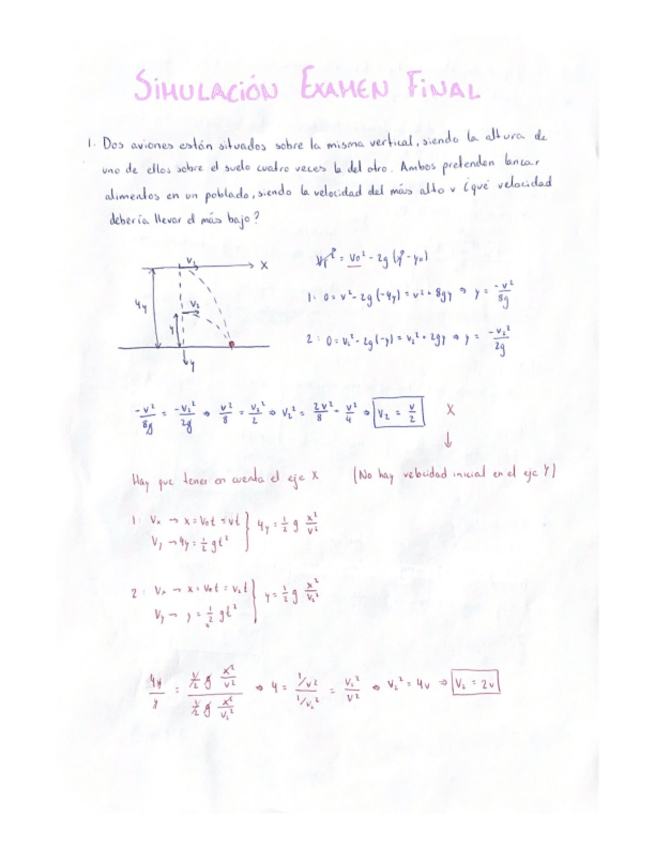 SIMULACIÓN EXAMEN FINAL
1. Dos aviones están situados sobre la misma vertical, siendo la altura de
uno de ellos sobre el suelo cuatro veces la del otro. Ambos pretenden lanzar
alimentos en un poblado, siendo la velocidad del más alto v ¿qué velocidad
debería llevar el más bajo?
V₁ X
4y
V₂
y
y
Vf² = Vo² - 2g (y - yo)
1: 0 = v² - 2g (-4y) = v² + 8gy ⇒ y = -v²/8g
2: 0 = v₂² - 2g (-y) = v₂² + 2gy ⇒ y = -v₂²/2g
-v²/8g = -v₂²/2g ⇒ v²/8 = v₂²/2 ⇒ v₂² = 2v²/8 = v²/4 ⇒ V₂ = v/2 X
↓
Hay que tener en cuenta el eje X (No hay velocidad inicial en el eje Y)
1: Vx → x = Vot = vt
Vy → 4y = 1/2 gt² } 4y = 1/2 g x²/v²
2: Vx → x = Vot = V₂t
Vy → y = 1/2 gt² } y = 1/2 g x²/V₂²
4y/y = (1/2 g x²/v²)/(1/2 g x²/v₂²) ⇒ 4 = (1/v²)/(1/v₂²) = v₂²/v² ⇒ v₂² = 4v ⇒ V₂ = 2v